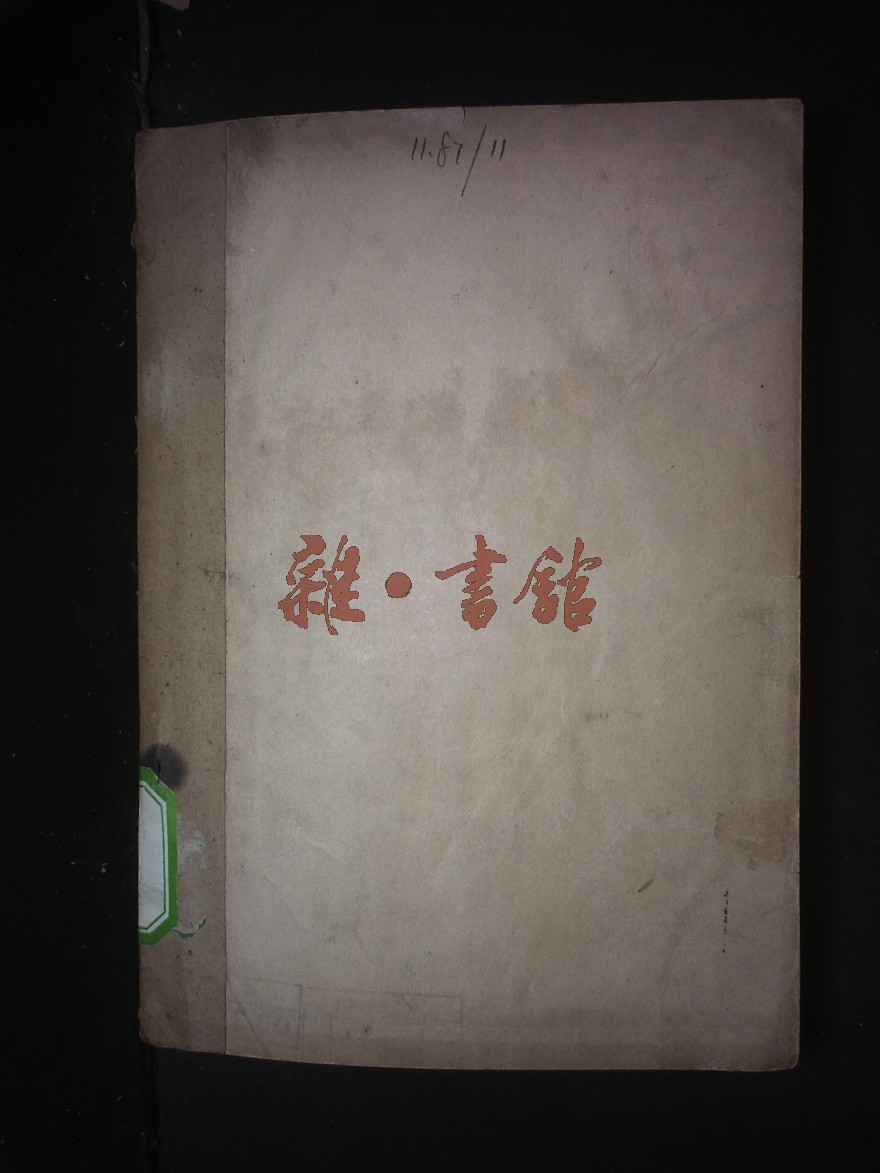 11.87/11
雜·書館